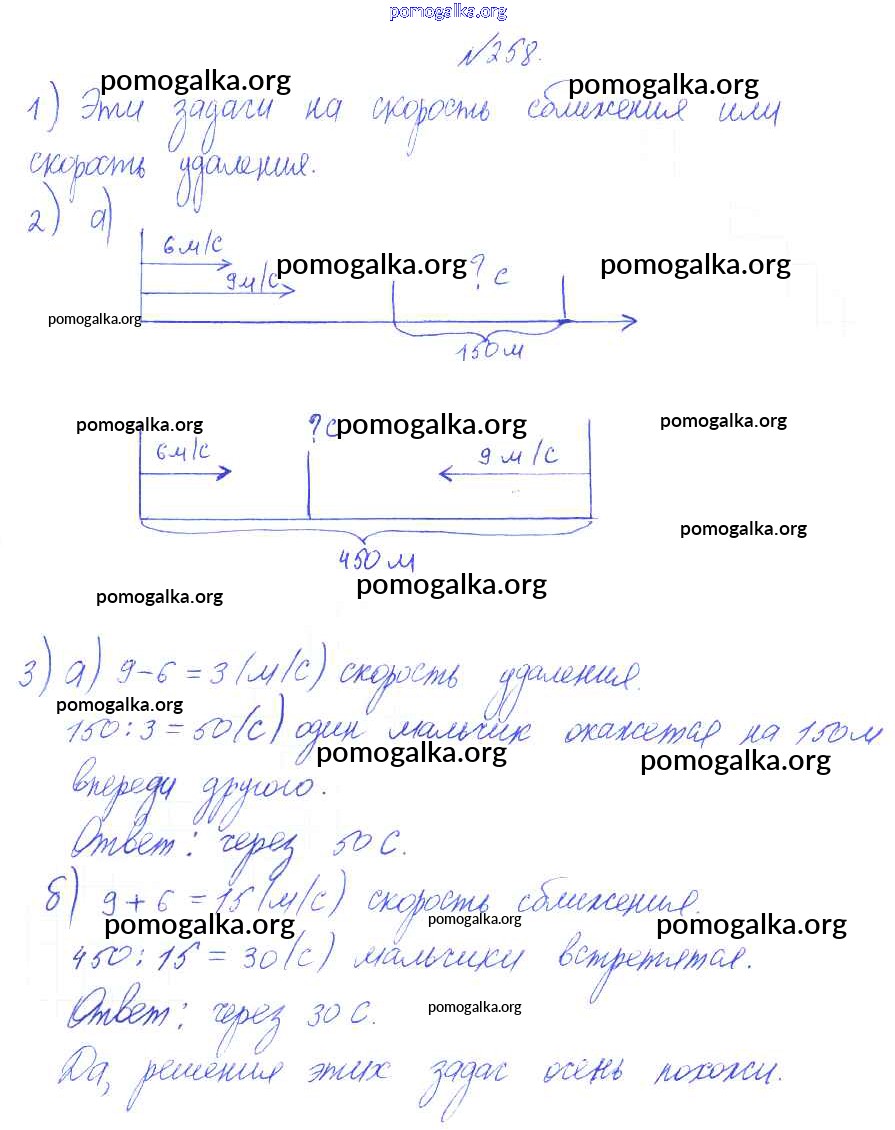 pomogalka.org
№258.
pomogalka.org pomogalka.org
1) Эти задачи на скорость сближения или
скорость удаления.
2) а)
6м/с
pomogalka.org ? с pomogalka.org
9м/с
pomogalka.org
150м
pomogalka.org ?с pomogalka.org pomogalka.org
6м/с 9 м/с
pomogalka.org
450м
pomogalka.org
pomogalka.org
3) а) 9-6=3(м/с) скорость удаления.
pomogalka.org
150:3=50(с) один мальчик окажется на 150м
pomogalka.org pomogalka.org
впереди другого.
Ответ: через 50 с.
б) 9+6=15(м/с) скорость сближения.
pomogalka.org pomogalka.org pomogalka.org
450:15=30(с) мальчики встретятся.
pomogalka.org
Ответ: через 30 с.
Да, решения этих задач очень похожи.